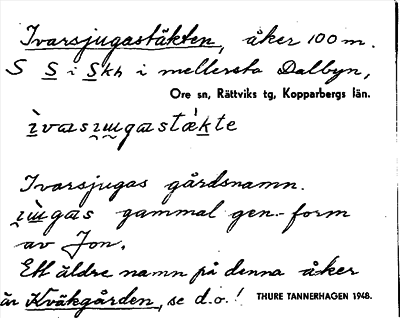 Ivarsjugastäkten, åker 100 m.
S S i Skh i mellersta Dalbyn,
Ore sn, Rättviks tg, Kopparbergs län.
Ivarsjugas gårdsnamn.
gammal gen.-form
av Jon.
Ett äldre namn på denna åker
är Kväkgården, se d.o.!
THURE TANNERHAGEN 1948.